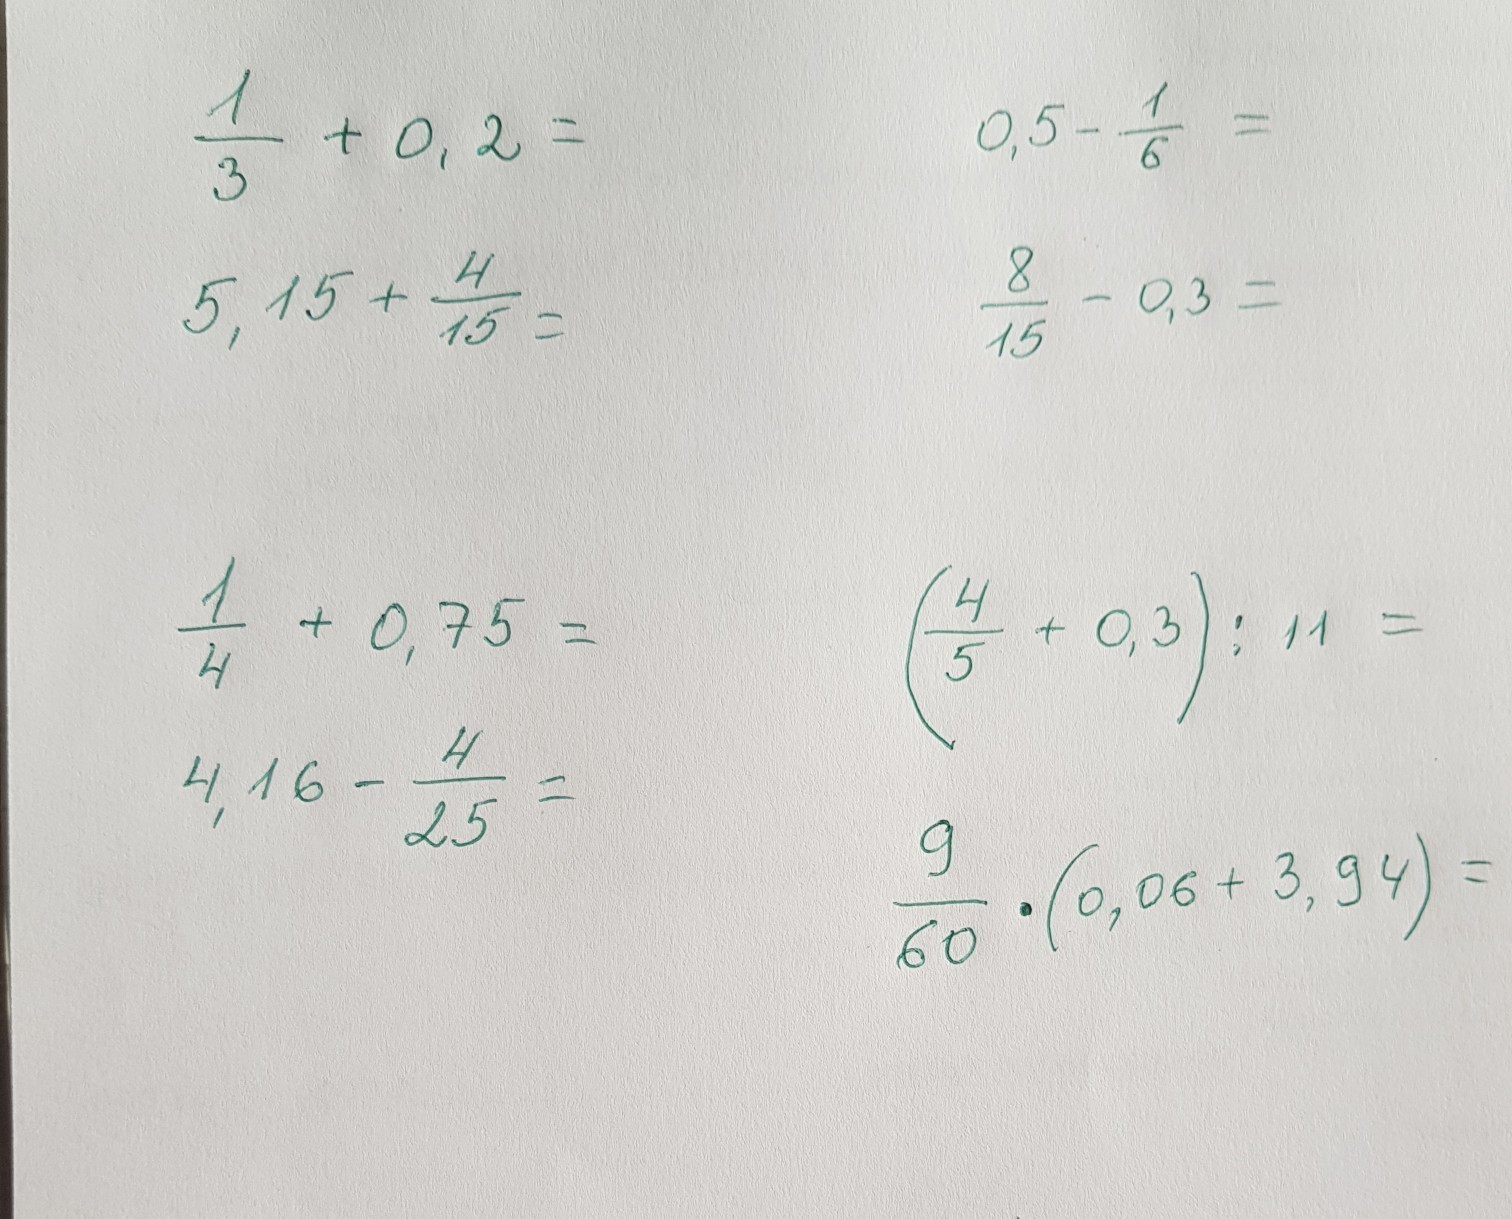 1/3 + 0,2 =
5,15 + 4/15 =
0,5 - 1/6 =
8/15 - 0,3 =
1/4 + 0,75 =
4,16 - 4/25 =
(4/5 + 0,3) : 11 =
9/60 · (0,06 + 3,94) =